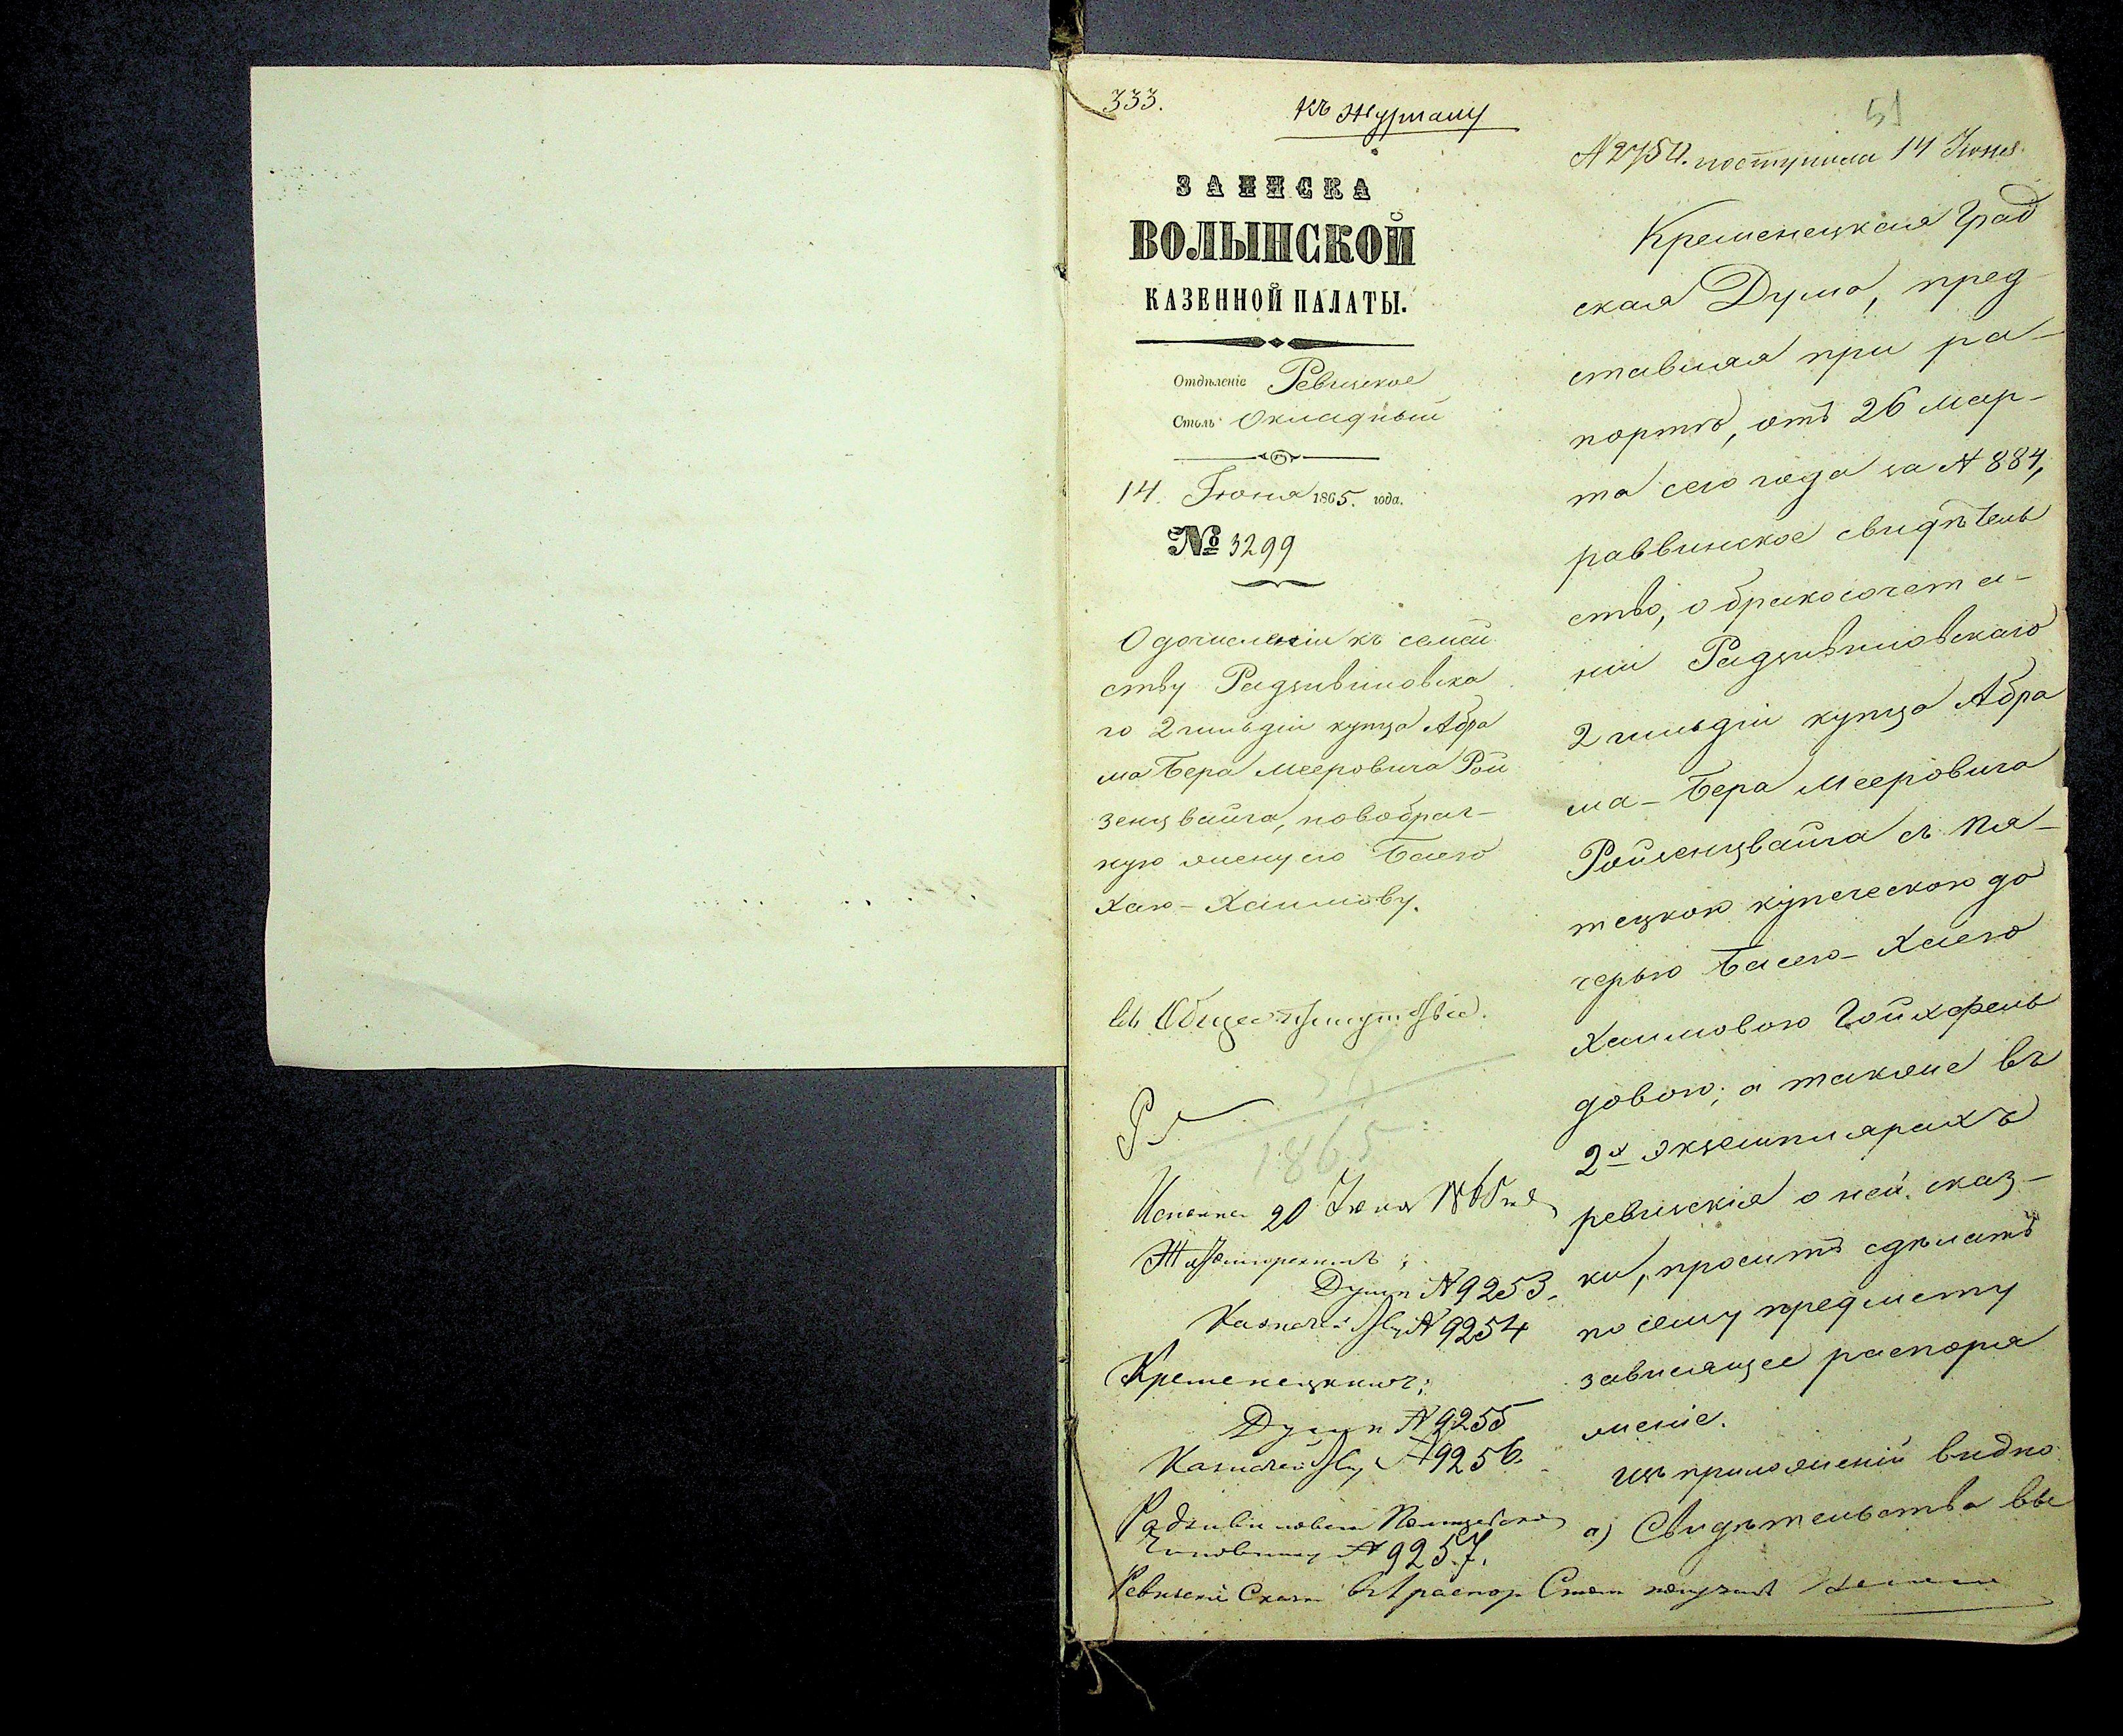 333.
Къ журналу
51
ЗАПИСКА
ВОЛЫНСКОЙ
КАЗЕННОЙ ПАЛАТЫ.
Отдѣленіе Ревизское
Столъ Окладный
14. Іюня 1865. года.
№ 3299
О дочисленіи къ семей
ству Радзивиловска
го 2 гильдіи купца Абра
ма Бера Мееровича Рой
зенцвайга, новобрач-
ную жену его Басю
Хаю-Хаимову.
Въ Общее Присутствіе.
56
1865
Исполнен 20 Іюня 1865 года
Житомирскимъ:
Думѣ № 9253.
Казначейству № 9254
Кременецкимъ:
Думѣ № 9255
Казначейству № 9256.
Радзивиловск Полицейско
Чиновнику № 9257.
Ревизскія Сказки въ распор Стол получилъ
№ 2754. поступила 14 Іюня.
Кременецкая Град
ская Дума, пред
ставляя при ра-
портѣ, отъ 26 Мар-
та сего года за № 884,
раввинское свидѣтель
ство, о бракосочета-
ніи Радзивиловскаго
2 гильдіи купца Абра
ма-Бера Мееровича
Ройзенцвайга съ Пя-
тецкою купеческою до
черью Басею-Хаею
Хаимовою Гойхфель
довою; а также въ
2х экземплярахъ
ревизскія о ней сказ-
ки, проситъ сдѣлать
по сему предмету
зависящее распоря
женіе.
Изъ приложеній видно
а) Свидѣтельства вы